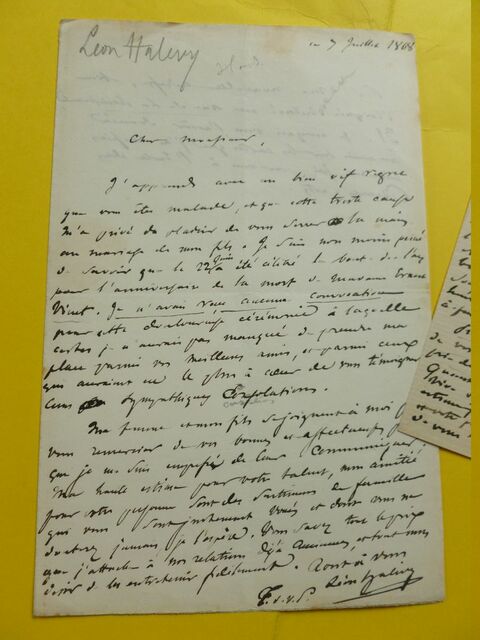 Léon Halévy
ce 7 Juillet 1868
Cher monsieur,
J'apprends avec un bien vif regret
que vous êtes malade, et que cette triste cause
m'a privé du plaisir de vous serrer la main
au mariage de mon fils. Je suis non moins peiné
de savoir que le 22 Juin a été célébré le bout de l'an
pour l'anniversaire de la mort de Madame Ernest
Vinet. Je n'avais reçu aucune convocation
pour cette douloureuse cérémonie à laquelle
certes je n'aurais pas manqué de prendre ma
place parmi vos meilleurs amis, et parmi ceux
qui auraient eu le plus à cœur de vous témoigner
leurs sympathiques consolations.
Ma femme et mon fils se joignent à moi pour
vous remercier de vos bonnes et affectueuses
que je me suis empressé de leur communiquer.
Ma haute estime pour votre talent, mon amitié
pour votre personne sont des sentiments de famille
qui vous sont justement voués et dont vous ne
douterez jamais, je l'espère. Vous savez tout le prix
que j'attache à nos relations déjà anciennes, et tout mon
désir de les entretenir fidèlement. Tout à vous
Léon Halévy
T.S.V.P.